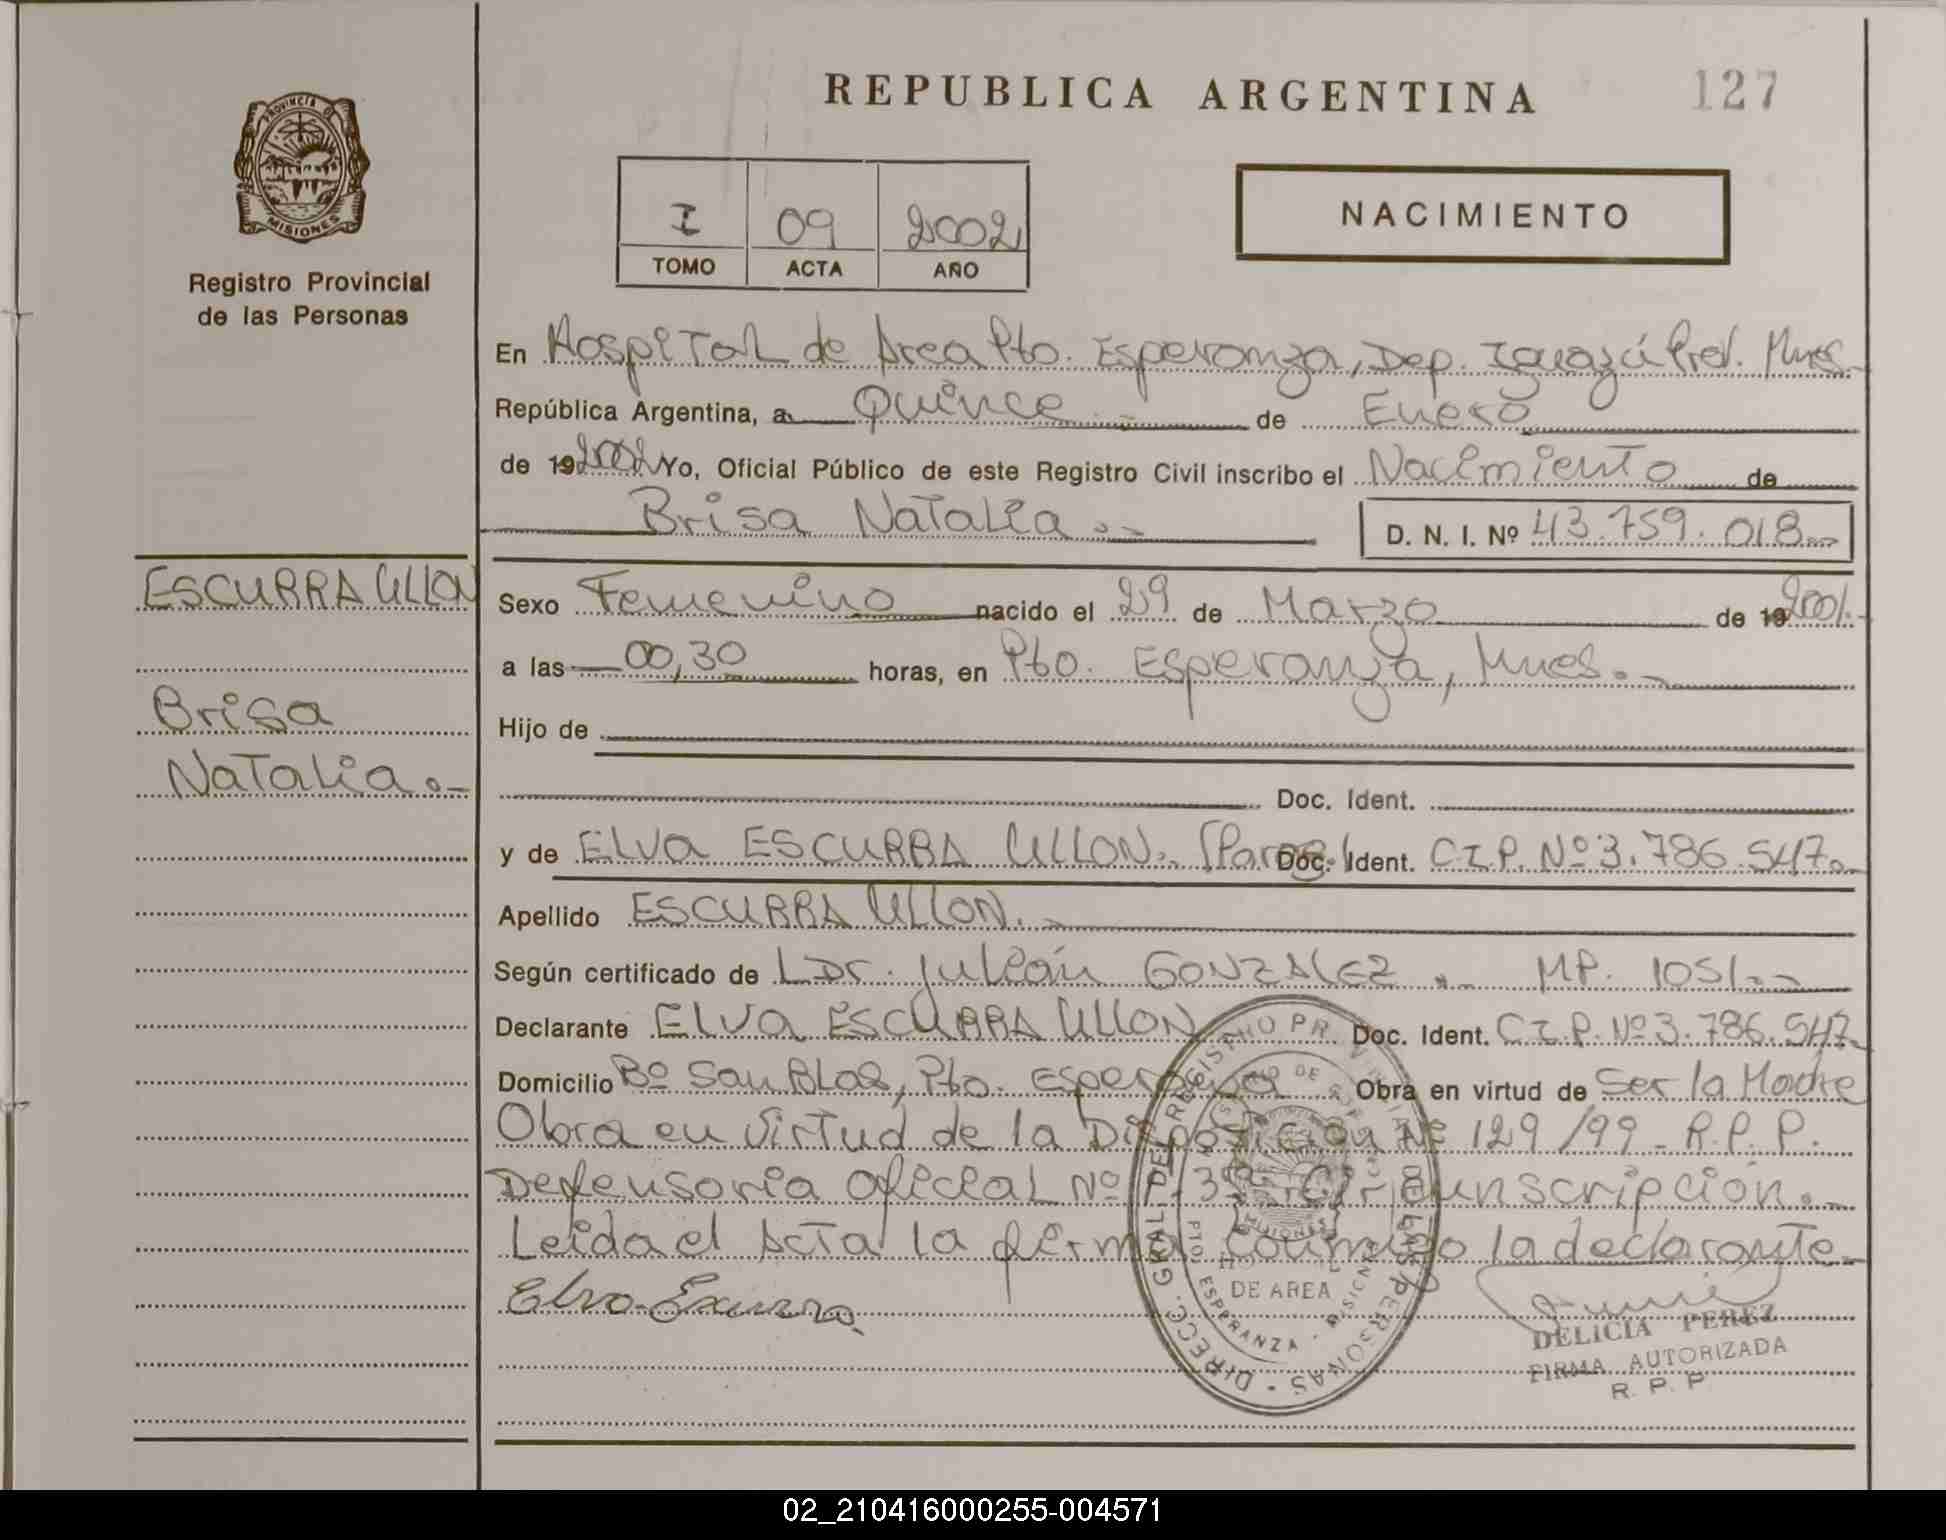 REPUBLICA ARGENTINA
127
PROVINCIA DE
MISIONES
Registro Provincial
de las Personas
I 09 2002
TOMO ACTA AÑO
NACIMIENTO
En Hospital de Area Pto. Esperanza, Dep. Iguazú Prov. Mnes.-
República Argentina, a Quince de Enero
de 192002 Yo, Oficial Público de este Registro Civil inscribo el Nacimiento de
Brisa Natalia.-
D. N. I. Nº 43.759.018.-
ESCURRA ULLON
Brisa
Natalia.-
Sexo Femenino nacido el 29 de Marzo de 192001.-
a las 00,30 horas, en Pto. Esperanza, Mnes.-
Hijo de
Doc. Ident.
y de ELVA ESCURRA ULLON. (Parag.) Doc. Ident. C.I.P. Nº 3.786.547.-
Apellido ESCURRA ULLON.-
Según certificado de Dr. Julián GONZALEZ. MP. 1051.-
Declarante ELVA ESCURRA ULLON Doc. Ident. C.I.P. Nº 3.786.547.-
Domicilio Bº San Blas, Pto. Esperanza Obra en virtud de Ser la Madre
Obra en virtud de la Disposición Nº 129/99 - R.P.P.
Defensoria Oficial Nº 1 - 3ra. Circunscripción.-
Leida el Acta la firma conmigo la declarante.-
Elva Escurra
DIRECC. GRAL. DEL REGISTRO PROVINCIAL DE LAS PERSONAS
MISIONES
DE AREA
PTO. ESPERANZA - MISIONES
DELICIA PEREZ
FIRMA AUTORIZADA
R. P. P.
02_210416000255-004571